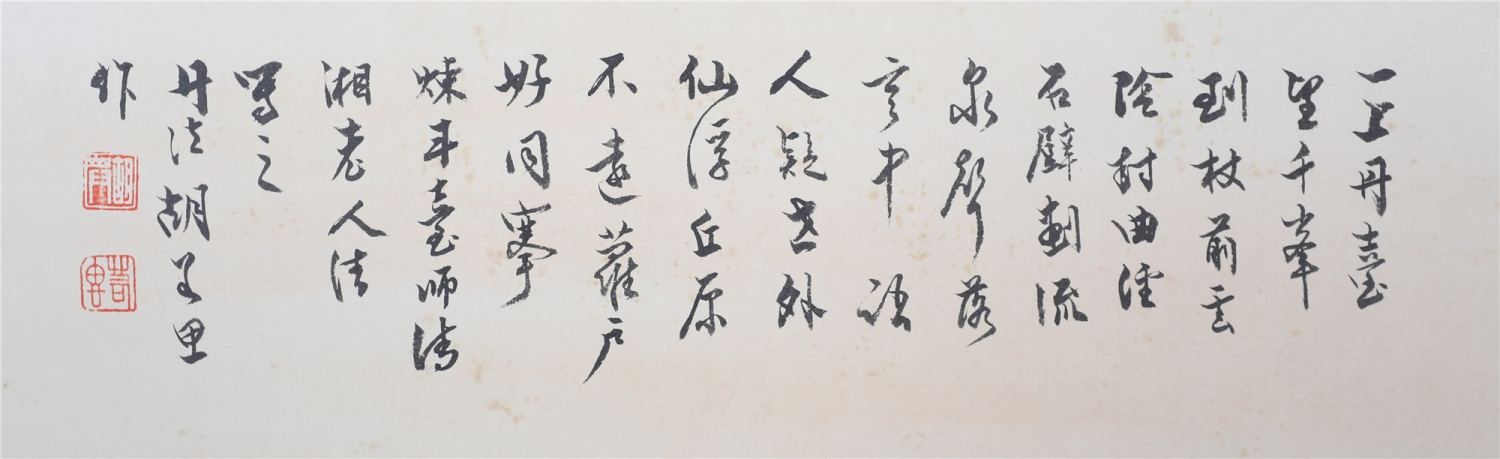 一上丹臺
望千峯
到杖前雲
陰封曲徑
石壁劃流
泉聲落
空中語
人疑世外
仙浮丘原
不遠蘿戶
好同搴
煉丹臺師清
湘老人法
寫之
丹胡里
作